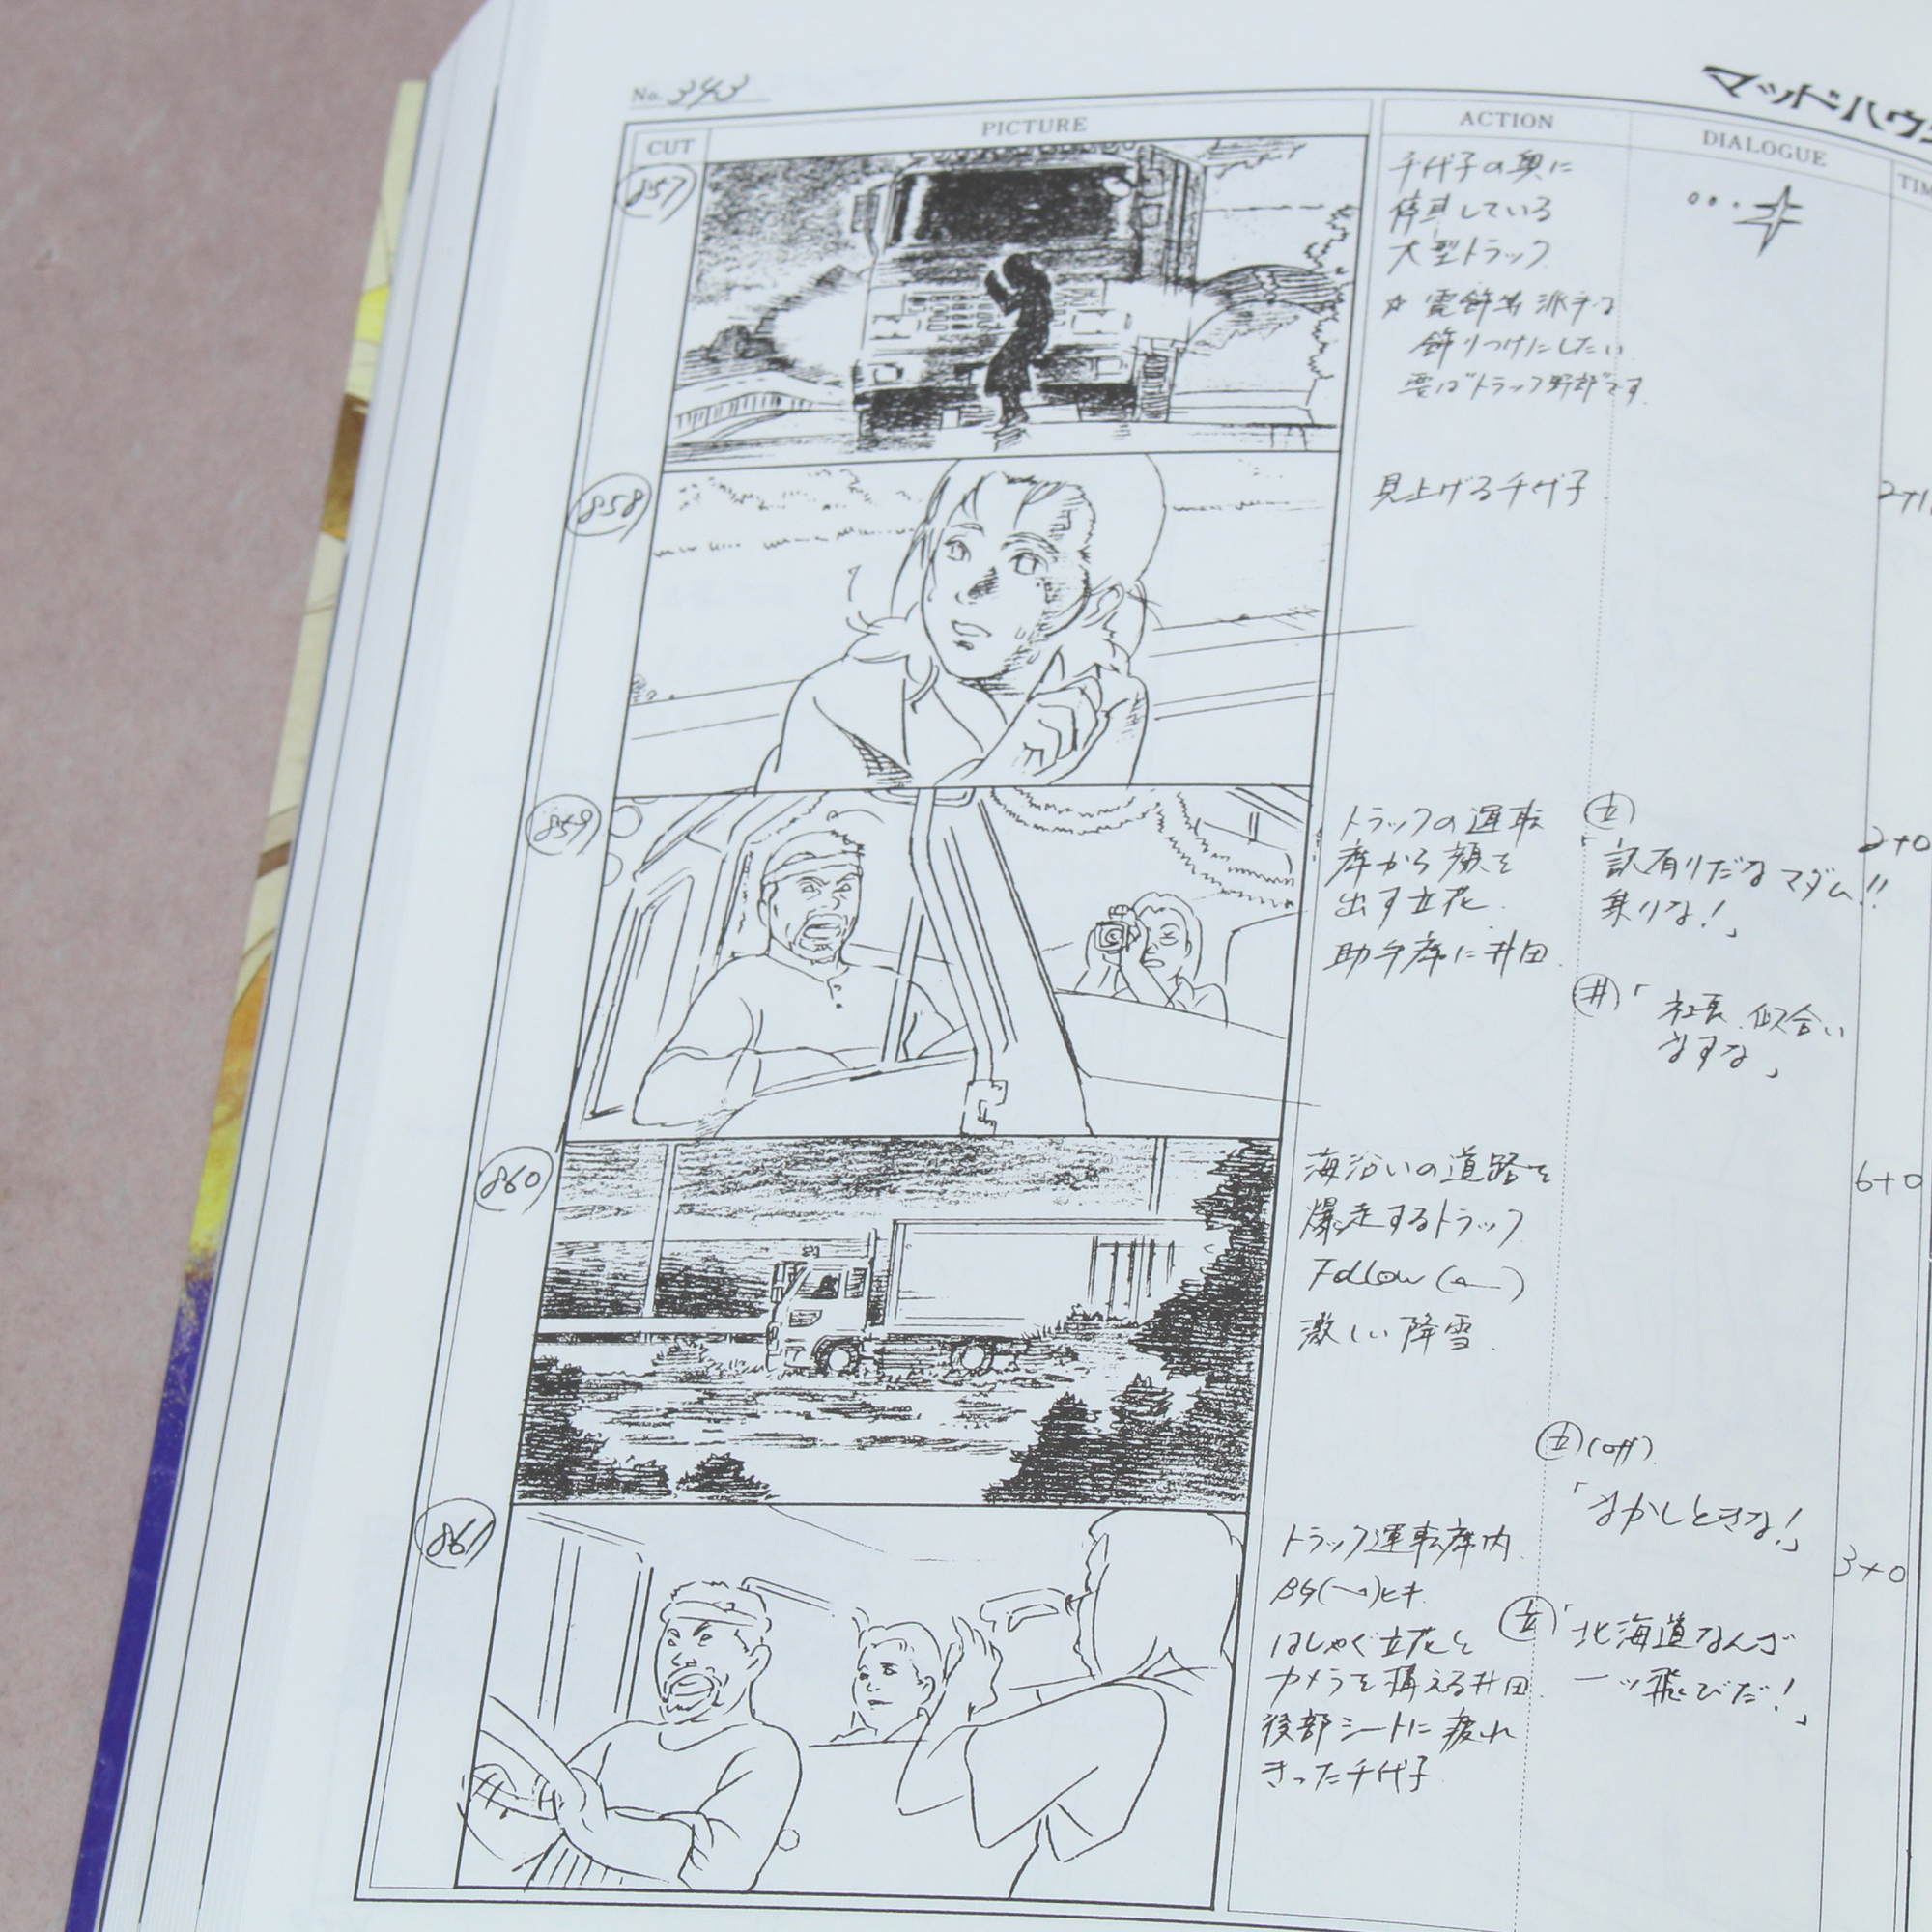 No. 343
マッドハウ
CUT
PICTURE
ACTION
DIALOGUE
TIM
857
千代子の奥に
停車している
大型トラック
☆電飾等派手な
飾りつけにしたい
要は"トラック野郎"です
858
見上げる千代子
2+1
859
トラックの運転
席から顔を
出す立花
助手席に井田
立
「訳有りだなマダム!!
乗りな!」
井「社長、似合い
ますな」
2+0
860
海沿いの道路を
爆走するトラック
Follow(←)
激しい降雪
6+0
立(off)
「まかしときな!」
861
トラック運転席内
BG(→)ヒキ
はしゃぐ立花と
カメラを構える井田
後部シートに疲れ
きった千代子
立「北海道なんざ
一ッ飛びだ!」
3+0